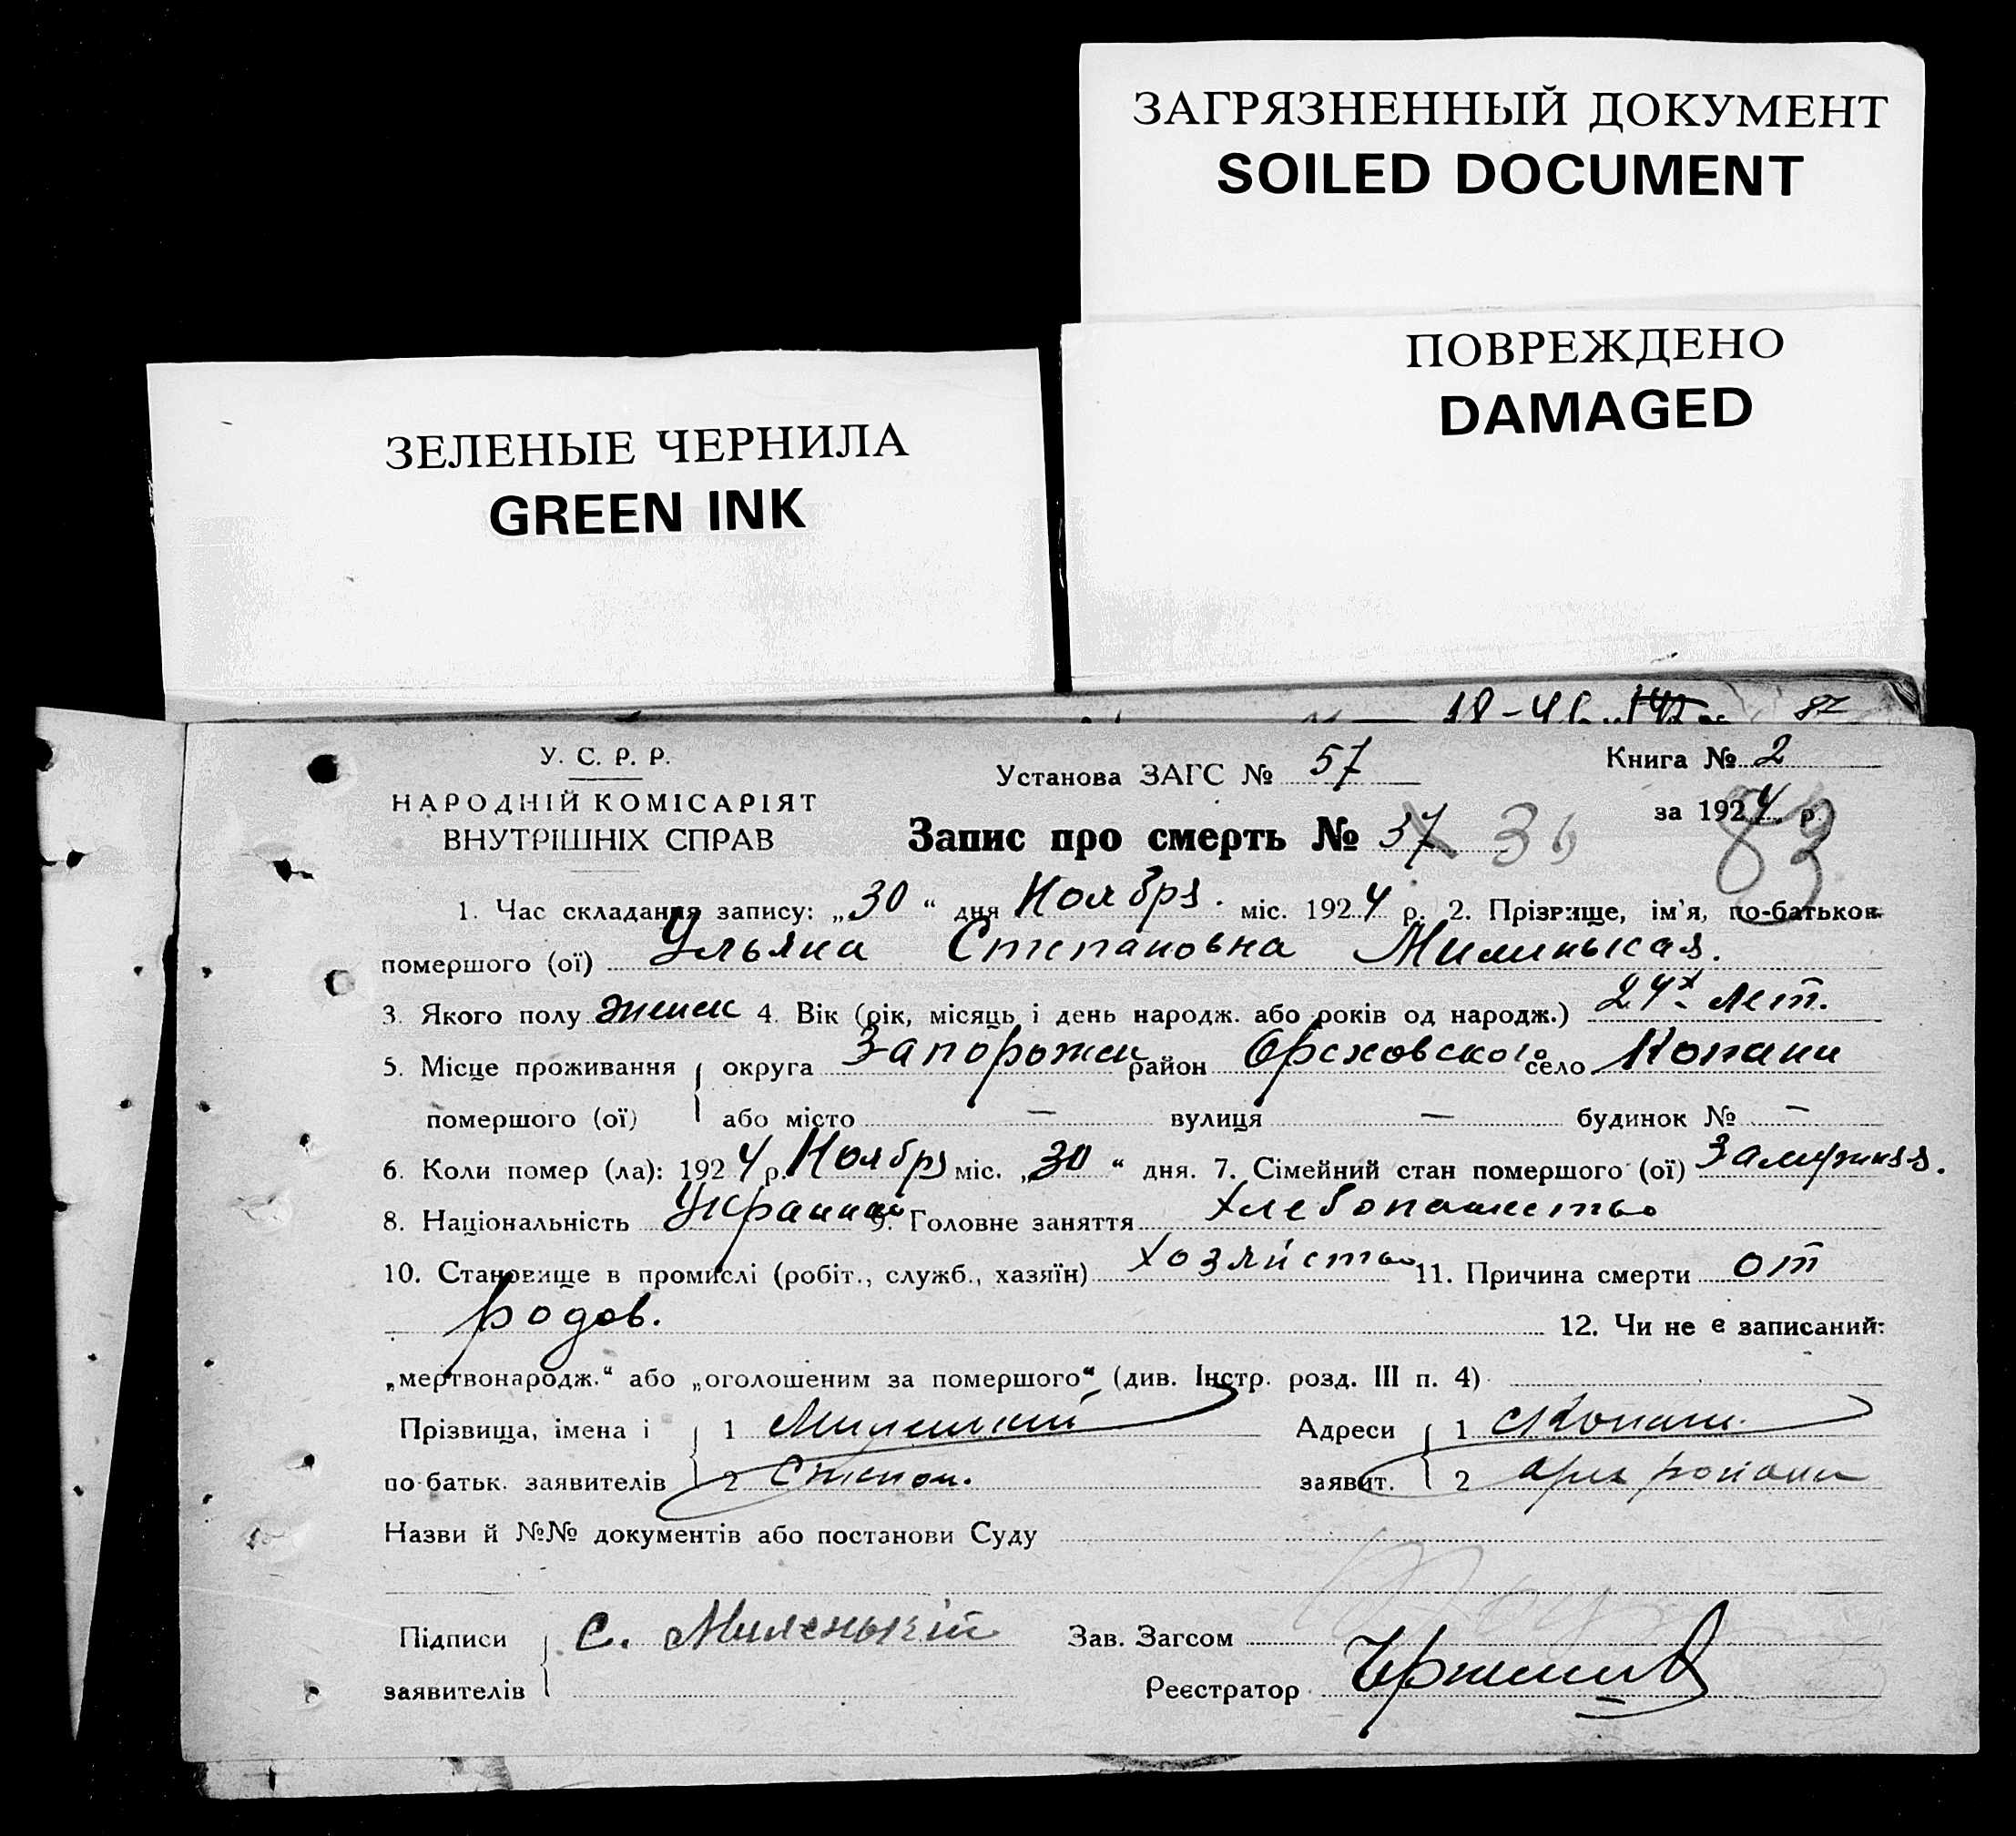 ЗАГРЯЗНЕННЫЙ ДОКУМЕНТ
SOILED DOCUMENT
ПОВРЕЖДЕНО
DAMAGED
ЗЕЛЕНЫЕ ЧЕРНИЛА
GREEN INK
У. С. Р. Р.
НАРОДНІЙ КОМІСАРІЯТ
ВНУТРІШНІХ СПРАВ
Установа ЗАГС № 57
Книга № 2
за 1924 р.
Запис про смерть № 37 36
83
1. Час складання запису: „30“ дня Ноября. міс. 1924 р. 2. Прізвище, ім'я, по-батьков.
помершого (ої) Ульяна Степановна Милинькая.
3. Якого полу женск 4. Вік (рік, місяць і день народж. або років од народж.) 24х лет.
5. Місце проживання округа Запорожск район Ореховского село Копани
помершого (ої) або місто — вулиця — будинок № —
6. Коли помер (ла): 1924 р. Ноября міс. „30“ дня. 7. Сімейний стан помершого (ої) Замужняя.
8. Національність 9. Головне заняття Хлебопашество
10. Становище в промислі (робіт., служб., хазяїн) Хозяйство 11. Причина смерти от
родов. 12. Чи не є записаний:
„мертвонародж.“ або „оголошеним за помершого“ (див. Інстр. розд. III п. 4)
Прізвища, імена і 1 Адреси 1 с Копани
по-батьк. заявителів 2 Степан. заявит. 2
Назви й №№ документів або постанови Суду
Підписи С. Миленькій Зав. Загсом
заявителів Реєстратор